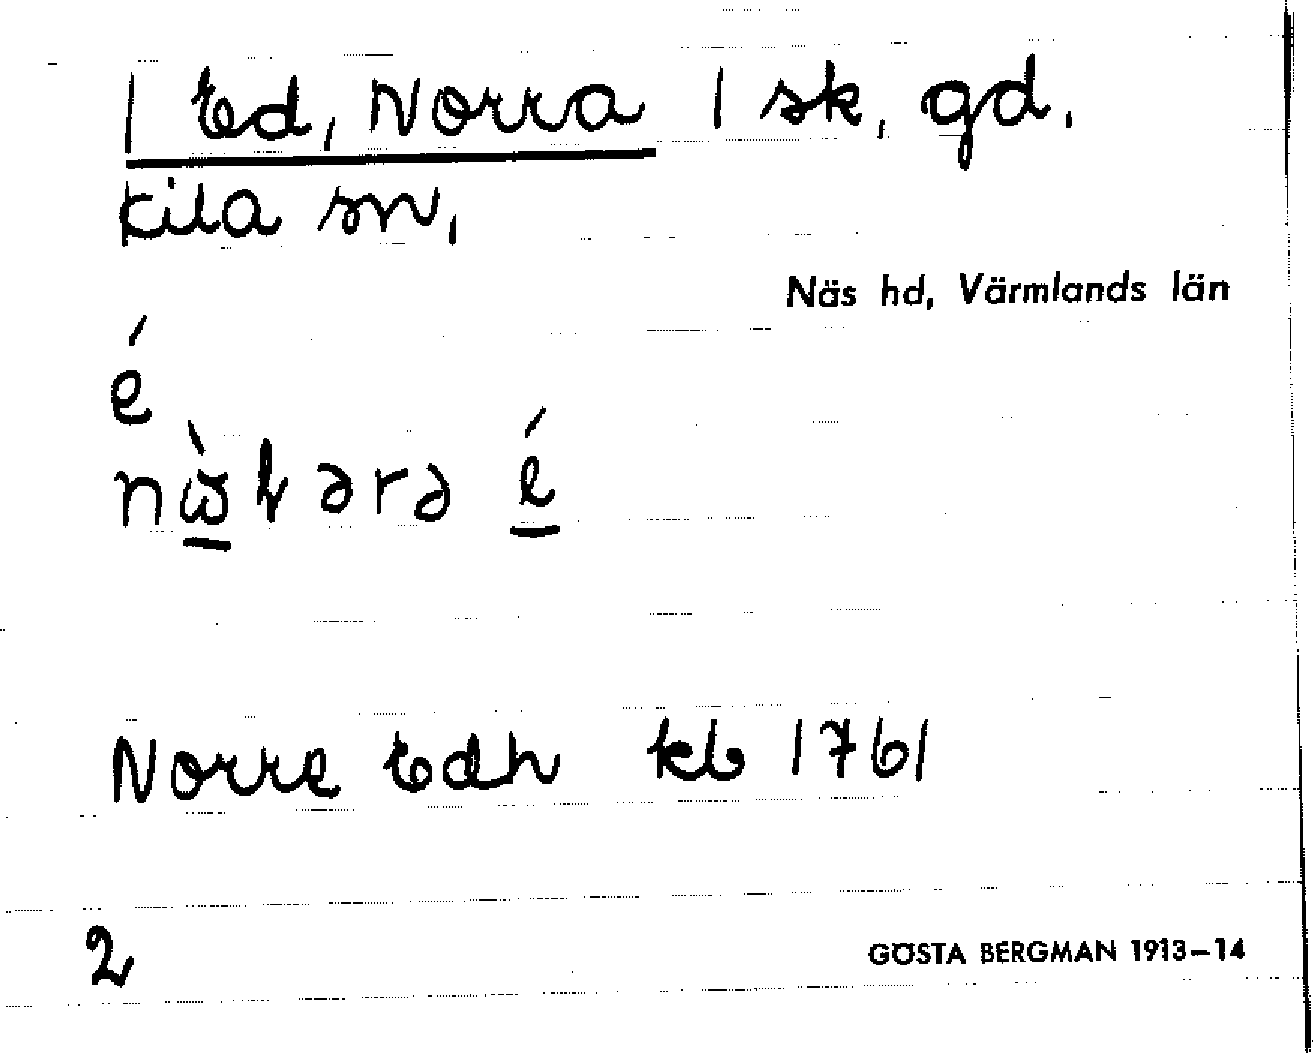 | Ed, Norra | sk, gd.
Kila sn,
Näs hd, Värmlands län
é
Norre Edh kb 1761
2
GÖSTA BERGMAN 1913–14